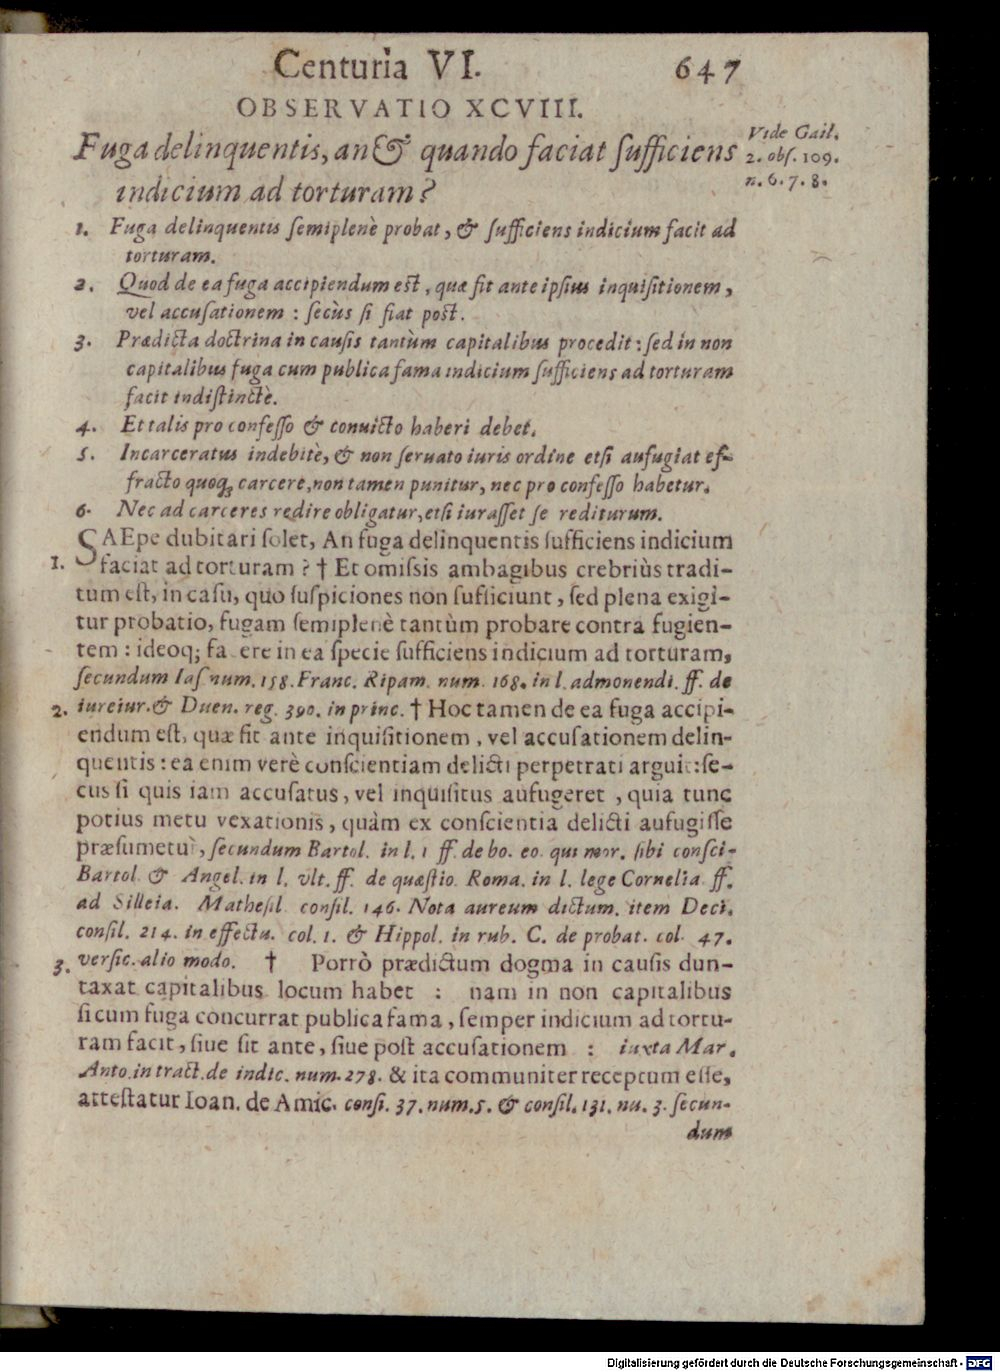 Centuria VI. 647
OBSERVATIO XCVIII.
Fuga delinquentis, an & quando faciat ſufficiens
indicium ad torturam?
Vide Gail.
2. obſ. 109.
n. 6. 7. 8.
1. Fuga delinquentis ſemiplenè probat, & ſufficiens indicium facit ad
torturam.
2. Quod de ea fuga accipiendum est, quæ fit ante ipſius inquiſitionem,
vel accuſationem : ſecùs ſi fiat post.
3. Prædicta doctrina in cauſis tantùm capitalibus procedit : ſed in non
capitalibus fuga cum publica fama indicium ſufficiens ad torturam
facit indiſtinctè.
4. Et talis pro confeſſo & conuicto haberi debet.
5. Incarceratus indebitè, & non ſeruato iuris ordine etſi aufugiat ef-
fracto quoq; carcere, non tamen punitur, nec pro confeſſo habetur.
6. Nec ad carceres redire obligatur, etſi iuraſſet ſe rediturum.
SAEpe dubitari ſolet, An fuga delinquentis ſufficiens indicium
1. faciat ad torturam ? † Et omiſsis ambagibus crebriùs tradi-
tum eſt, in caſu, quo ſuſpiciones non ſufficiunt, ſed plena exigi-
tur probatio, fugam ſemiplenè tantùm probare contra fugien-
tem : ideoq; fa ere in ea ſpecie ſufficiens indicium ad torturam,
ſecundum Iaſ. num. 158. Franc. Ripam. num. 168. in l. admonendi. ff. de
2. iureiur. & Duen. reg. 390. in princ. † Hoc tamen de ea fuga accipi-
endum eſt, quæ fit ante inquiſitionem, vel accuſationem delin-
quentis : ea enim verè conſcientiam delicti perpetrati arguit : ſe-
cus ſi quis iam accuſatus, vel inquiſitus aufugeret, quia tunc
potius metu vexationis, quàm ex conſcientia delicti aufugiſſe
præſumetur, ſecundum Bartol. in l. 1 ff. de bo. eo. qui mor. ſibi conſci-
Bartol. & Angel. in l. vlt. ff. de quæſtio. Roma. in l. lege Cornelia. ff.
ad Silleia. Matheſil. conſil. 146. Nota aureum dictum. item Deci.
conſil. 214. in effectu. col. 1. & Hippol. in rub. C. de probat. col. 47.
3. verſic. alio modo. † Porrò prædictum dogma in cauſis dun-
taxat capitalibus locum habet : nam in non capitalibus
ſi cum fuga concurrat publica fama, ſemper indicium ad tortu-
ram facit, ſiue ſit ante, ſiue poſt accuſationem : iuxta Mar.
Anto. in tract. de indic. num. 278. & ita communiter receptum eſſe,
atteſtatur Ioan. de Amic. conſi. 37. num. 5. & conſil. 131. nu. 3. ſecun-
dum
Digitalisierung gefördert durch die Deutsche Forschungsgemeinschaft - DFG